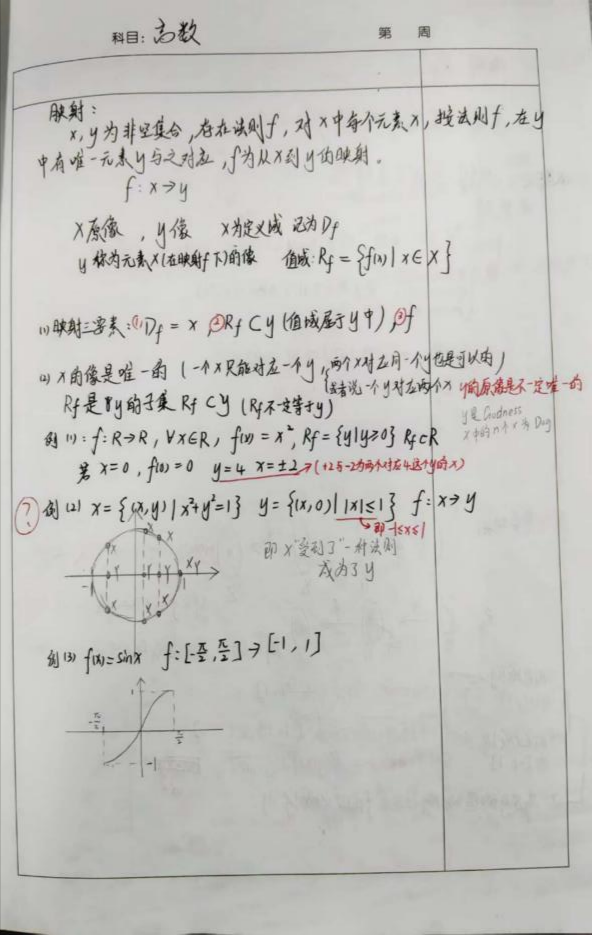 科目: 高数 第 周
映射:
x, y为非空集合,存在法则f,对x中每个元素x,按法则f,在y
中有唯一元素y与之对应,f为从x到y的映射。
f: x→y
x原像,y像 x为定义域 记为Df
y称为元素x(在映射f下)的像 值域: Rf = {f(x) | x∈X}
(1) 映射三要素: ①Df = x ②Rf ⊂ y (值域属于y中) ③f
(2) x的像是唯一的 (一个x只能对应一个y,两个x对应同一个y也是可以的)
(或者说一个y对应两个x y的原像是不一定唯一的
Rf是y的子集 Rf ⊂ y (Rf不一定等于y)
y是Godness
x中的n个x为Dog
例(1): f: R→R, ∀x∈R, f(x) = x², Rf = {y|y≥0} Rf⊂R
若x=0, f(0)=0 y=4 x=±2 →(+2与-2为两个对应4这个y的x)
? 例(2) x = {(x,y) | x²+y²=1} y = {(x,0) | |x|≤1} f: x→y
即 -1≤x≤1
即x"受到了"一种法则
成为了y
x x x
-1 Y Y Y 1 XY
x x x
例(3) f(x)=sinx f: [-π/2, π/2] → [-1, 1]
1
-π/2 π/2
-1